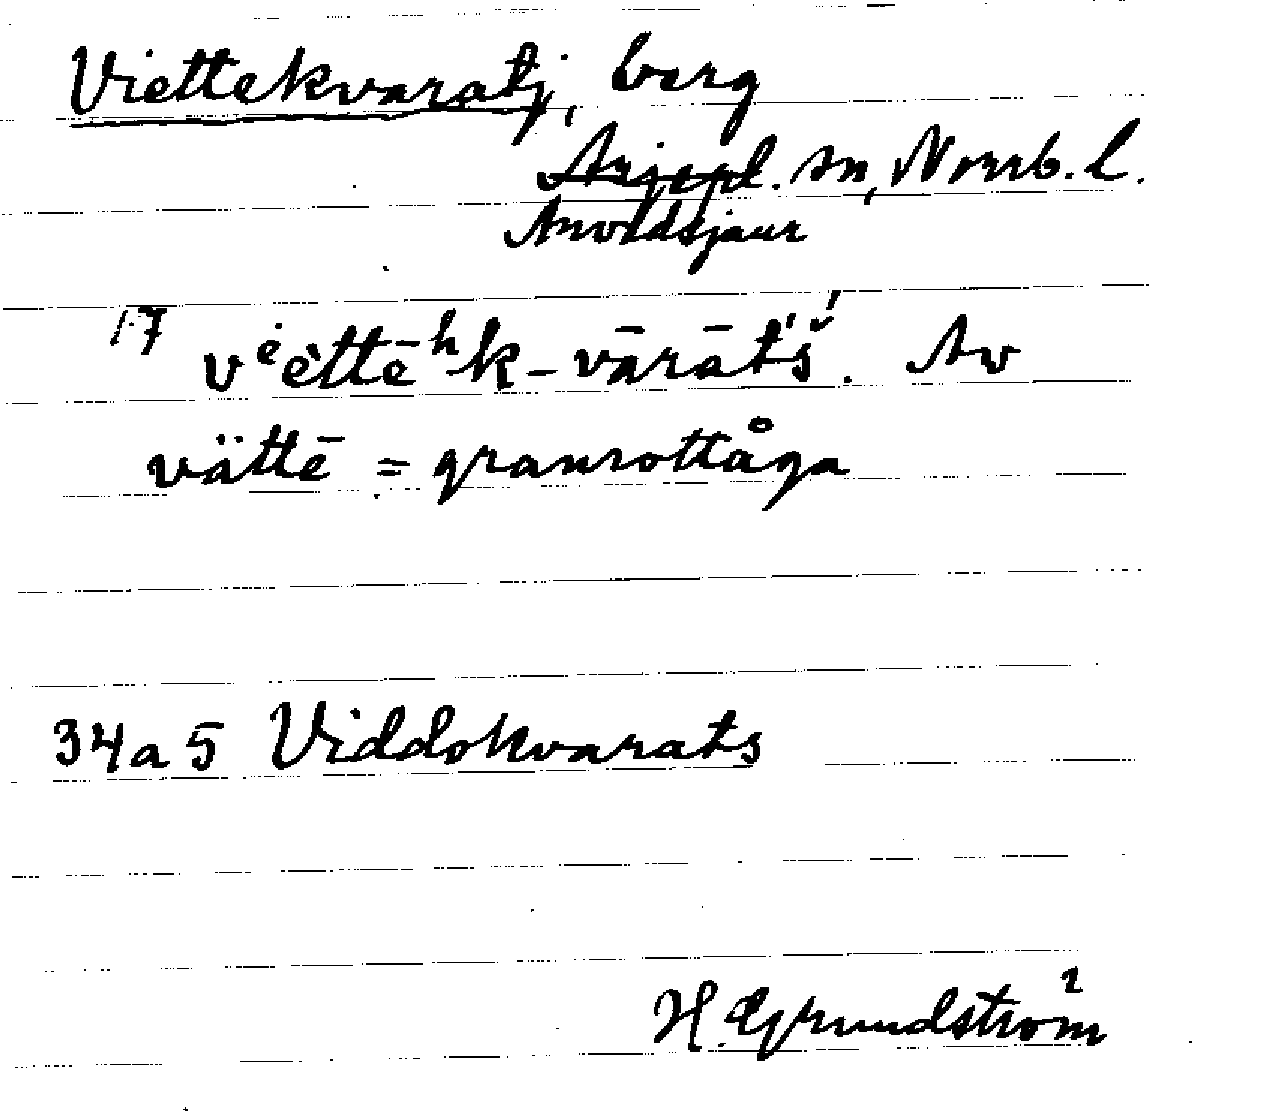 Viettekvaratj, berg
Arjepl. sn, Norrb. l.
Arvidsjaur
17 vᵉėttēʰk-vārāt́š́. Av
vättē = granrottåga
34a5 Viddokvarats
H. Grundström